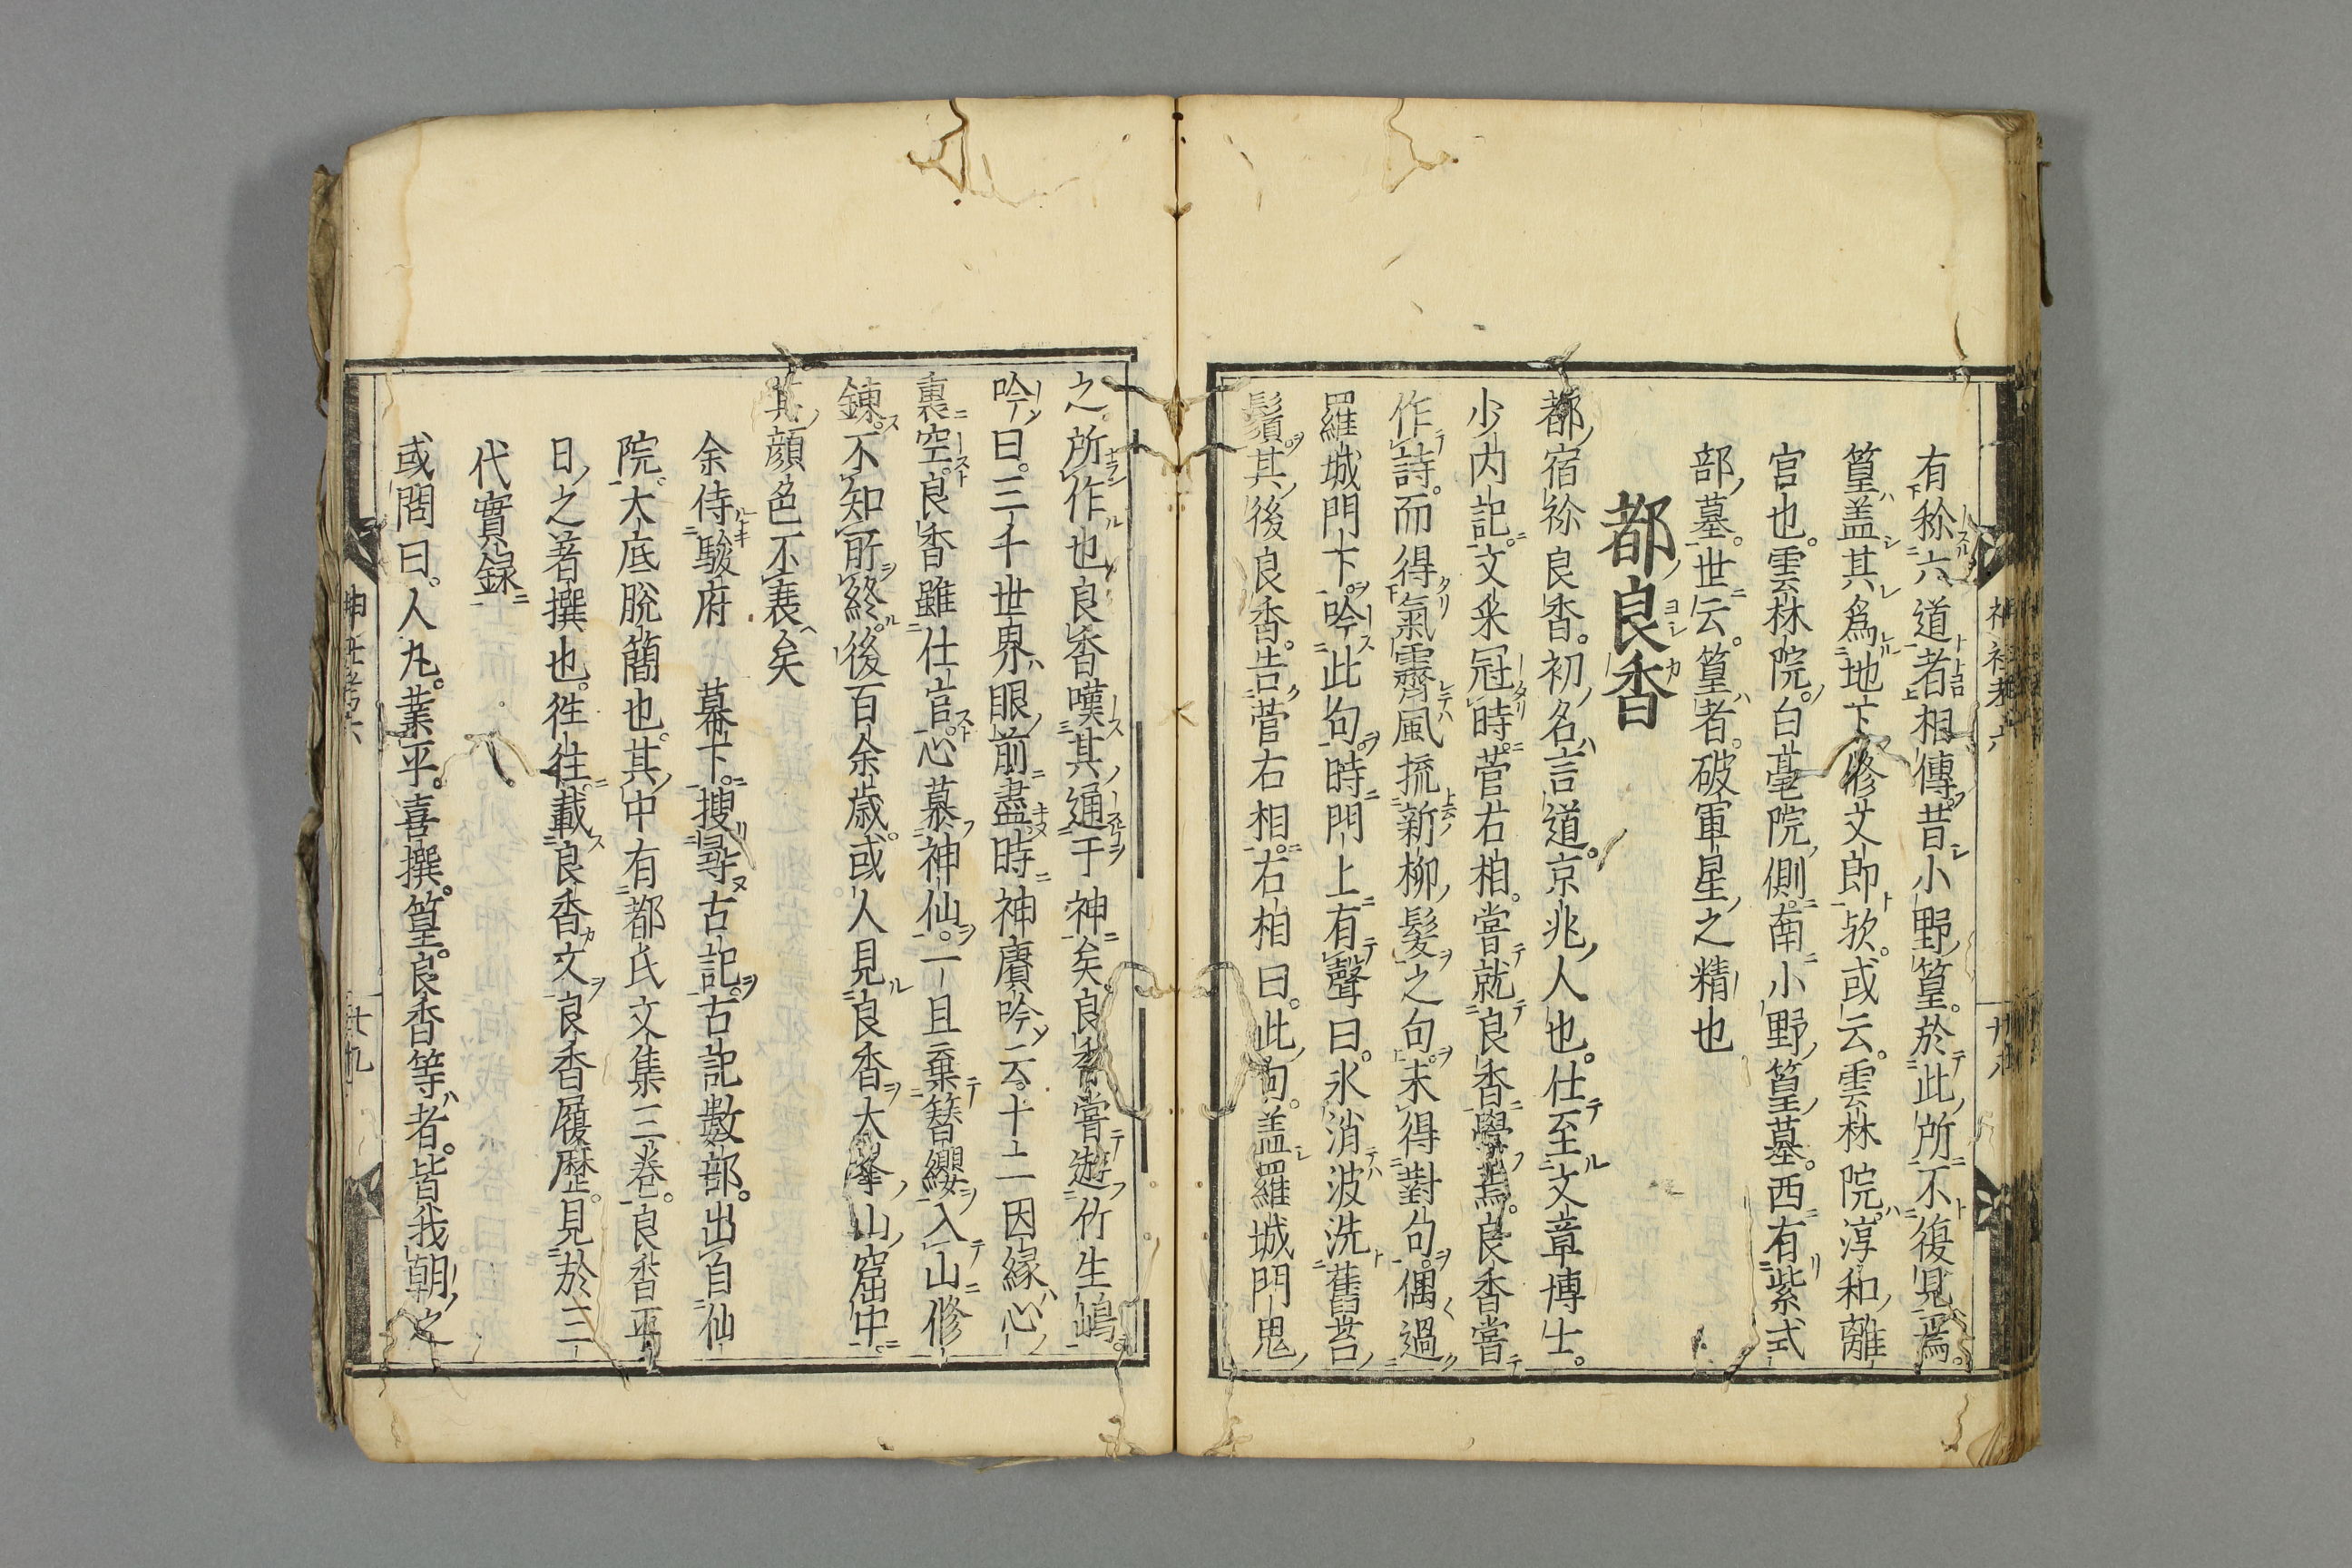 有稱六道者相傳昔小野篁於此所不復見焉
篁盖其爲地下修文郎歟或云雲林院淳和離
宮也雲林院白毫院側南小野篁墓西有紫式
部墓世云篁者破軍星之精也
都良香
都宿祢良香初名言道京兆人也仕至文章博士
少内記文采冠時菅右相嘗就良香學焉良香嘗
作詩而得氣霽風梳新柳髮之句未得對句偶過
羅城門下吟此句時門上有聲曰氷消波洗舊苔
鬚其後良香告菅右相右相曰此句盖羅城門鬼
之所作也良香嘆其通于神矣良香嘗遊竹生嶋
吟曰三千世界眼前盡時神賡吟云十二因縁心
裏空良香雖仕官心慕神仙一旦棄簪纓入山修
錬不知所終後百余歳或人見良香大峯山窟中
其顔色不衰矣
余侍駿府 幕下搜尋古記古記數部出自仙
院大底脱簡也其中有都氏文集三卷良香平
日之著撰也徃徃載良香文良香履歴見於三
代實録
或問曰人丸業平喜撰篁良香等者皆我朝之